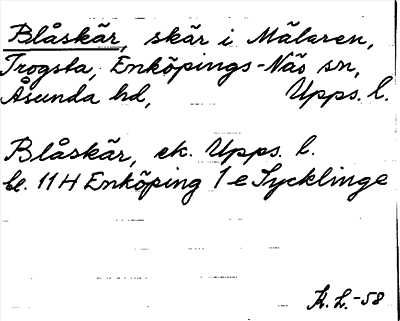 Blåskär, skär i Mälaren,
Trogsta, Enköpings-Näs sn,
Åsunda hd, Upps. l.
Blåskär, ek. Upps. l.
bl. 11 H Enköping 1 e Sycklinge
H. L. -58